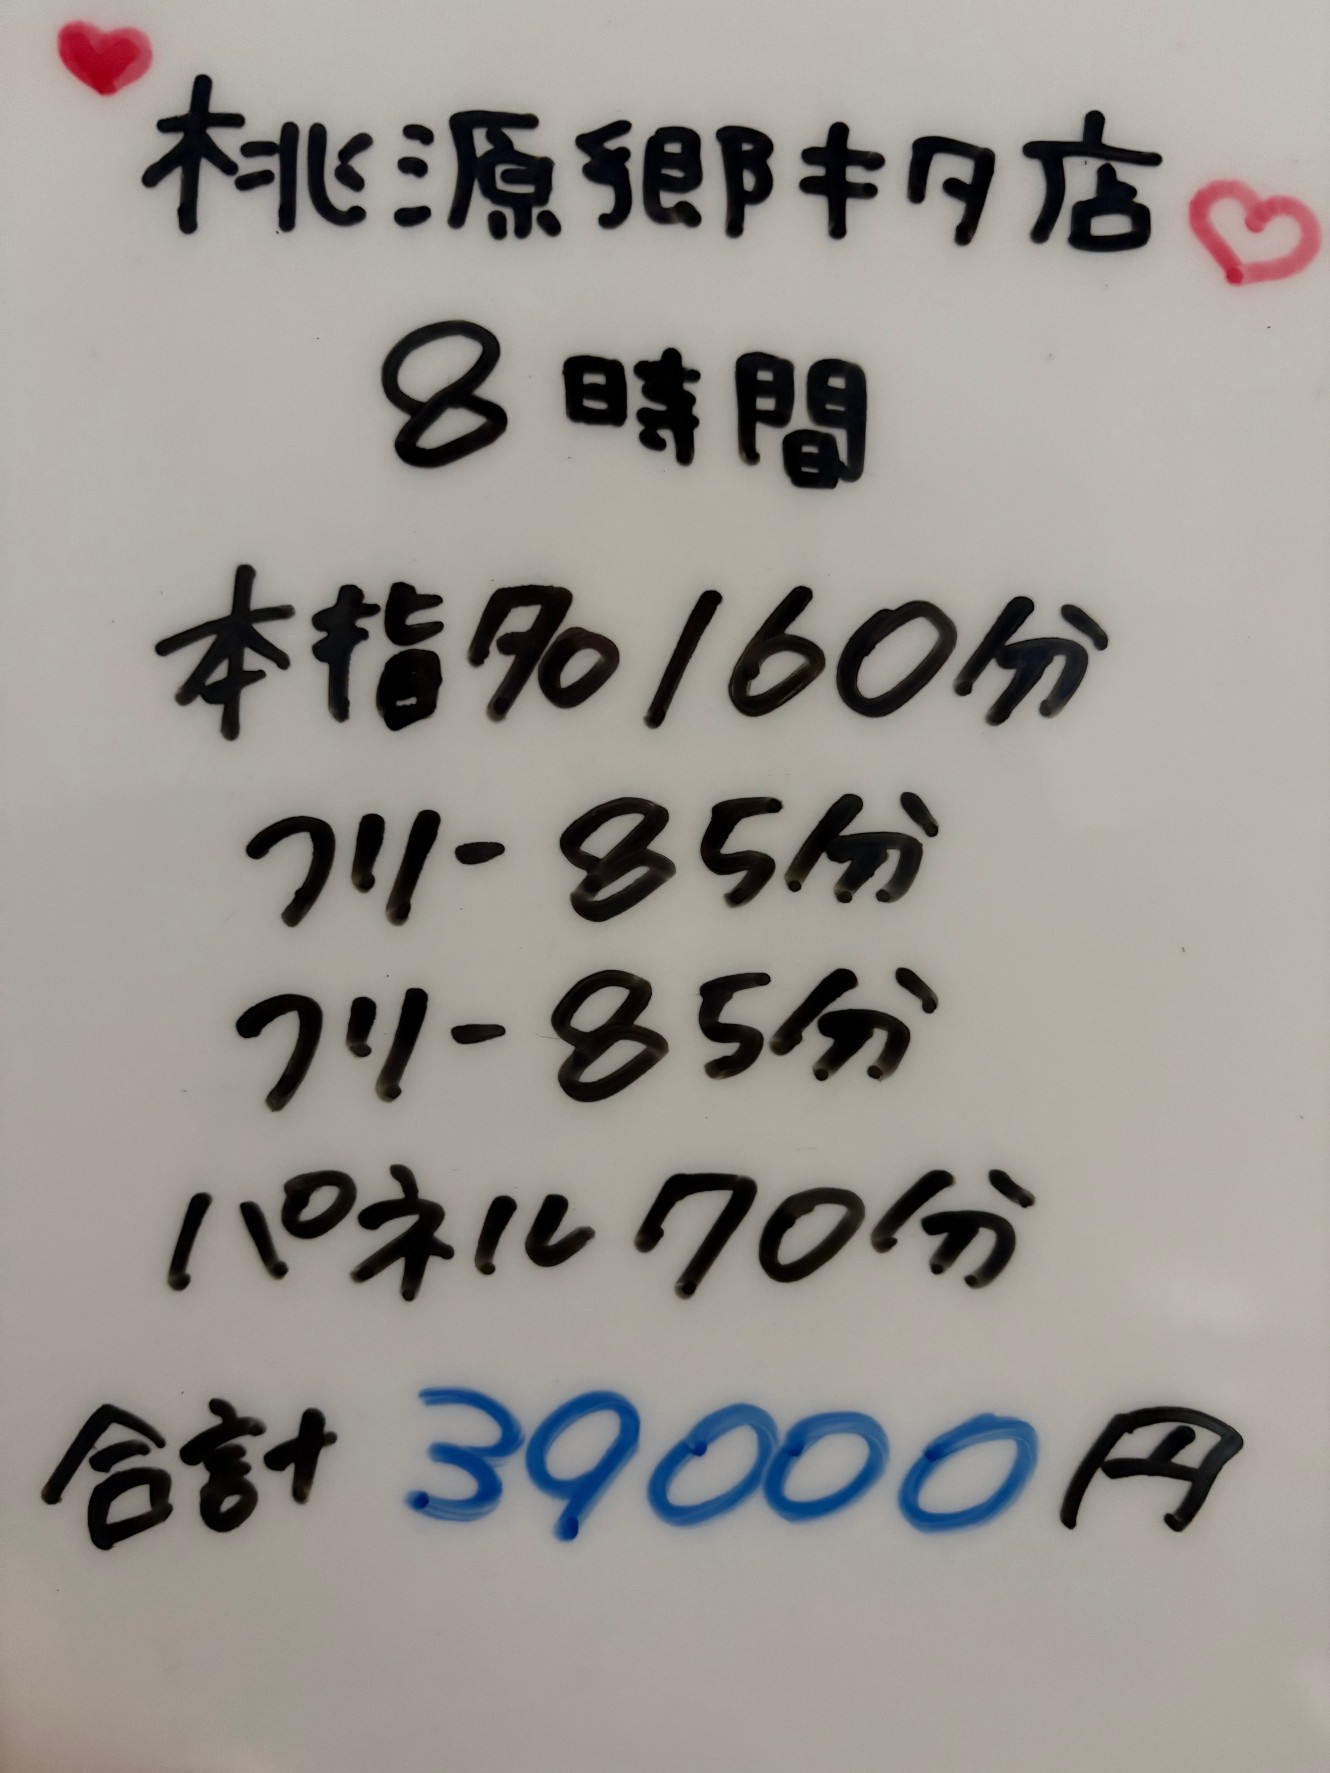 桃源郷キタ店
8時間
本指名160分
フリー85分
フリー85分
パネル70分
合計 39000円